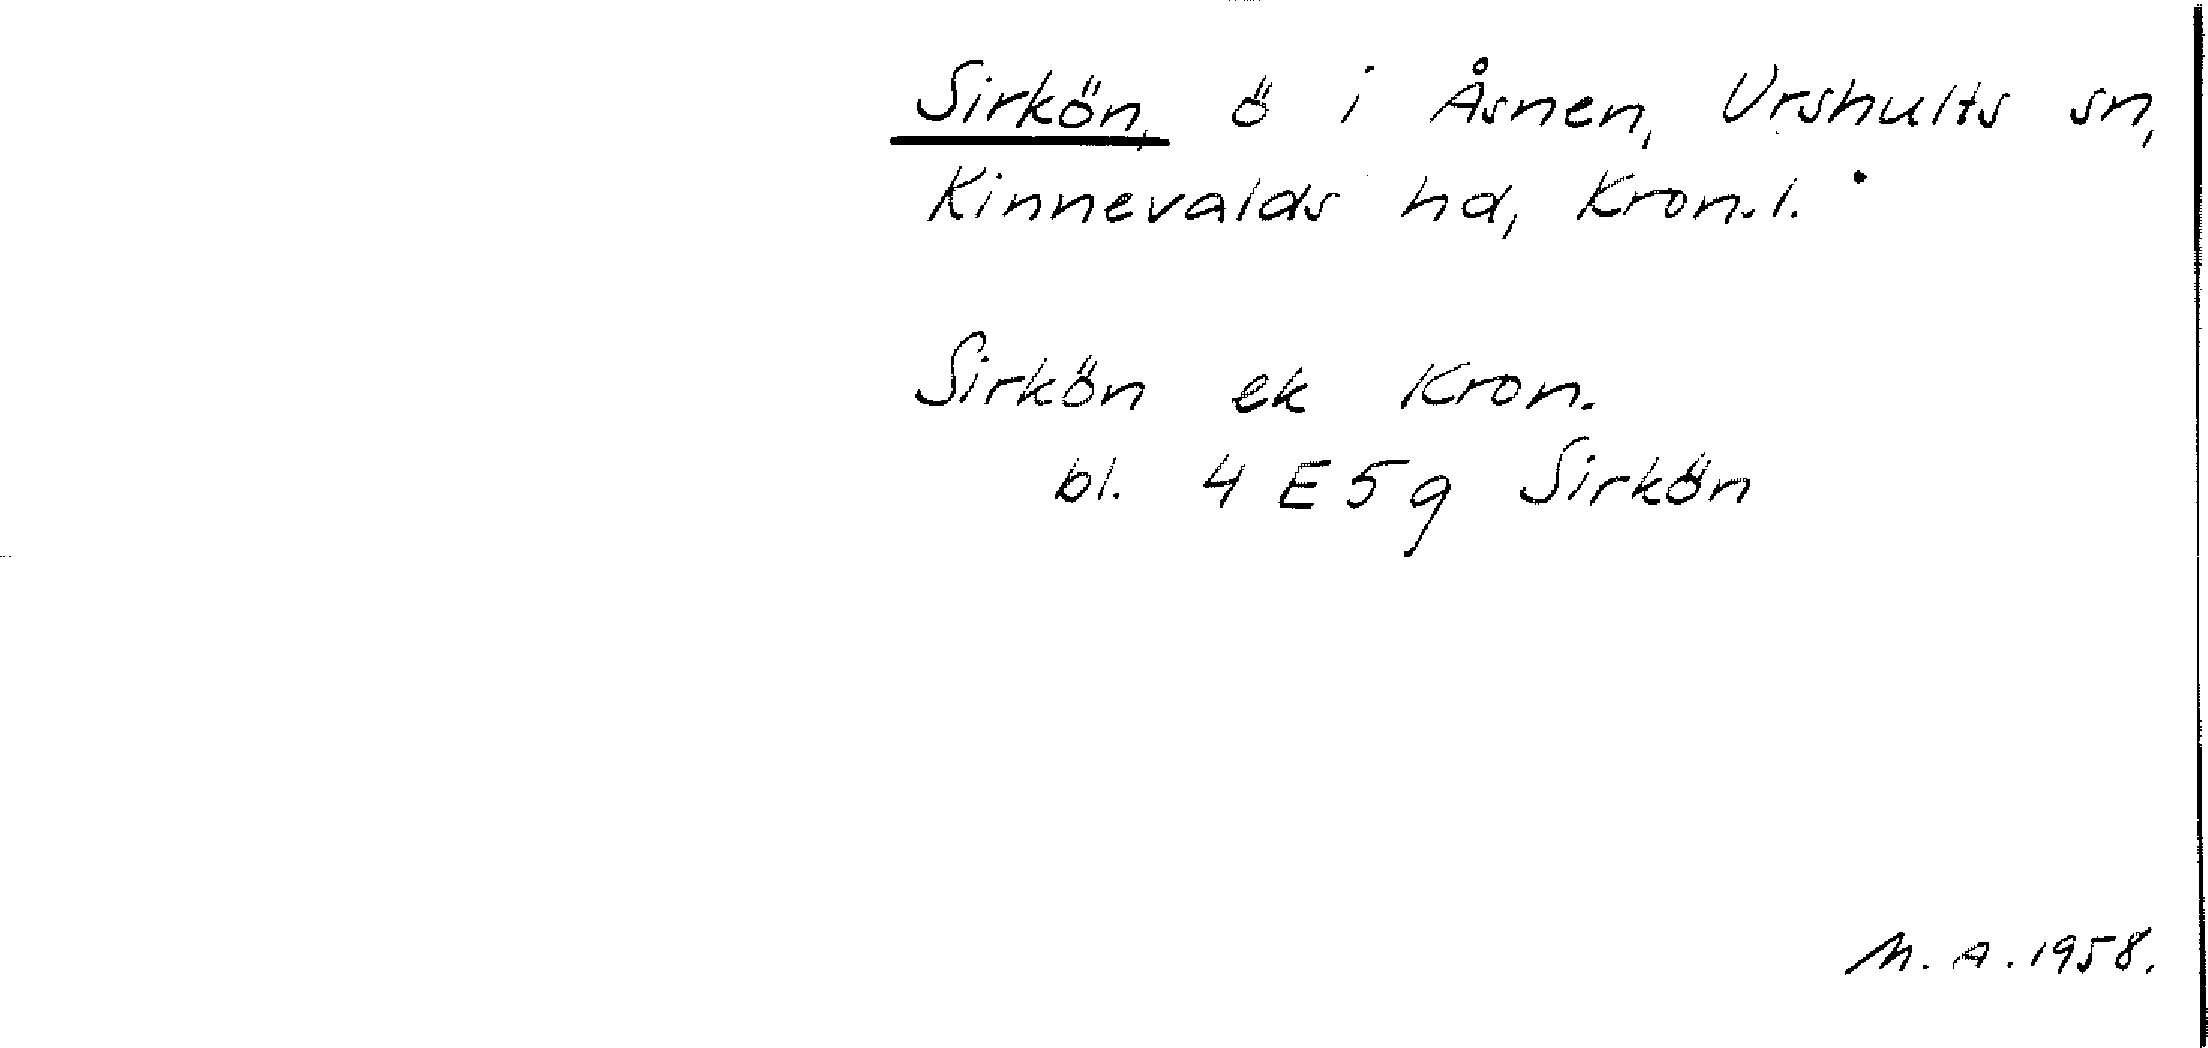 Sirkön, ö i Åsnen, Urshults sn,
Kinnevalds hd, Kron.l.
Sirkön ek Kron.
bl. 4 E 5 g Sirkön
M. A. 1958.